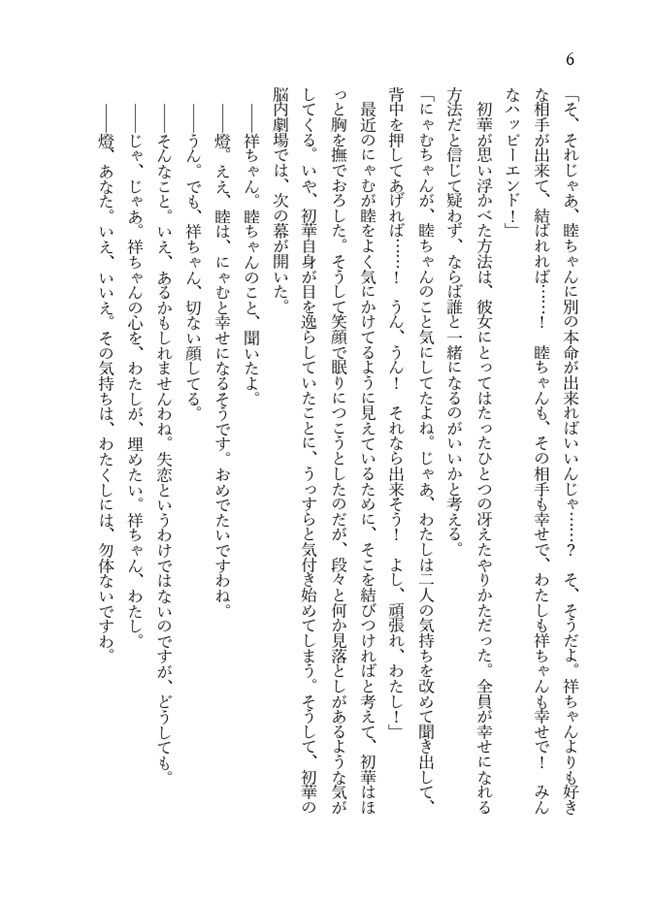 6
「そ、それじゃあ、睦ちゃんに別の本命が出来ればいいんじゃ……？　そ、そうだよ。祥ちゃんよりも好き
な相手が出来て、結ばれれば……！　睦ちゃんも、その相手も幸せで、わたしも祥ちゃんも幸せで！　みん
なハッピーエンド！」
　初華が思い浮かべた方法は、彼女にとってはたったひとつの冴えたやりかただった。全員が幸せになれる
方法だと信じて疑わず、ならば誰と一緒になるのがいいかと考える。
「にゃむちゃんが、睦ちゃんのこと気にしてたよね。じゃあ、わたしは二人の気持ちを改めて聞き出して、
背中を押してあげれば……！　うん、うん！　それなら出来そう！　よし、頑張れ、わたし！」
　最近のにゃむが睦をよく気にかけてるように見えているために、そこを結びつければと考えて、初華はほ
っと胸を撫でおろした。そうして笑顔で眠りにつこうとしたのだが、段々と何か見落としがあるような気が
してくる。いや、初華自身が目を逸らしていたことに、うっすらと気付き始めてしまう。そうして、初華の
脳内劇場では、次の幕が開いた。
　――祥ちゃん。睦ちゃんのこと、聞いたよ。
　――燈。ええ、睦は、にゃむと幸せになるそうです。おめでたいですわね。
　――うん。でも、祥ちゃん、切ない顔してる。
　――そんなこと。いえ、あるかもしれませんわね。失恋というわけではないのですが、どうしても。
　――じゃ、じゃあ。祥ちゃんの心を、わたしが、埋めたい。祥ちゃん、わたし。
　――燈、あなた。いえ、いいえ。その気持ちは、わたくしには、勿体ないですわ。